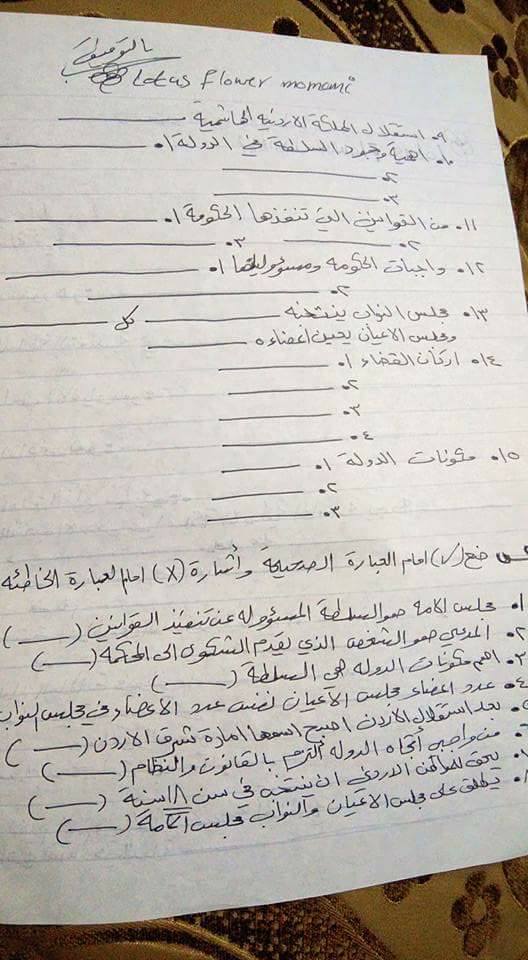 بالتوفيق
Lotus flower momani
٩. استقلال المملكة الاردنية الهاشمية
١٠. اهمية وجود السلطة في الدولة ١.
٢.
٣.
١١. من القوانين التي تنفذها الحكومة ١.
٢. ٣.
١٢. واجبات الحكومة ومسؤولياتها ١.
٢.
١٣. مجلس النواب ينتخبه كل
ومجلس الاعيان يعين أعضاءه
١٤. اركان القضاء ١.
٢.
٣.
٤.
١٥. مكونات الدولة ١.
٢.
٣.
س ضع (√) امام العبارة الصحيحة وأشارة (X) امام العبارة الخاطئه
١. مجلس الامة هو السلطة المسؤوله عن تنفيذ القوانين ( )
٢. المدعي هو الشخص الذي يقدم الشكوى الى المحكمة ( )
٣. اهم مكونات الدوله هي السلطة ( )
٤. عدد اعضاء مجلس الاعيان نصف عدد الاعضاء في مجلس النواب
٥. بعد استقلال الأردن اصبح اسمها امارة شرق الاردن ( )
٦. من واجبي أتجاه الدوله ألتزم بالقانون والنظام ( )
٧. يحق للمواطن الاردني ان ينتخب في سن ١٨ سنة ( )
٨. يطلق على مجلس الاعيان والنواب مجلس الامة ( )